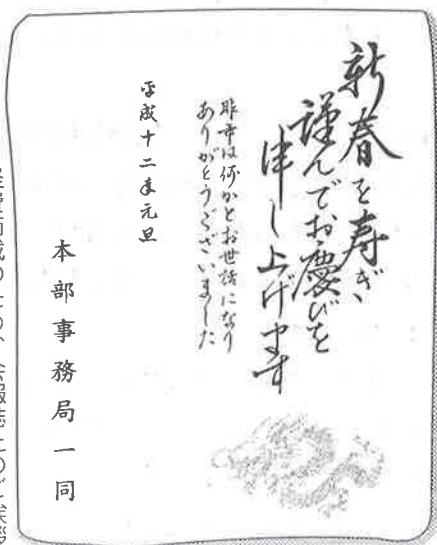 新春を寿ぎ
謹んでお慶びを
申し上げます
昨年は何かとお世話になり
ありがとうございました
平成十二年元旦
本部事務局一同